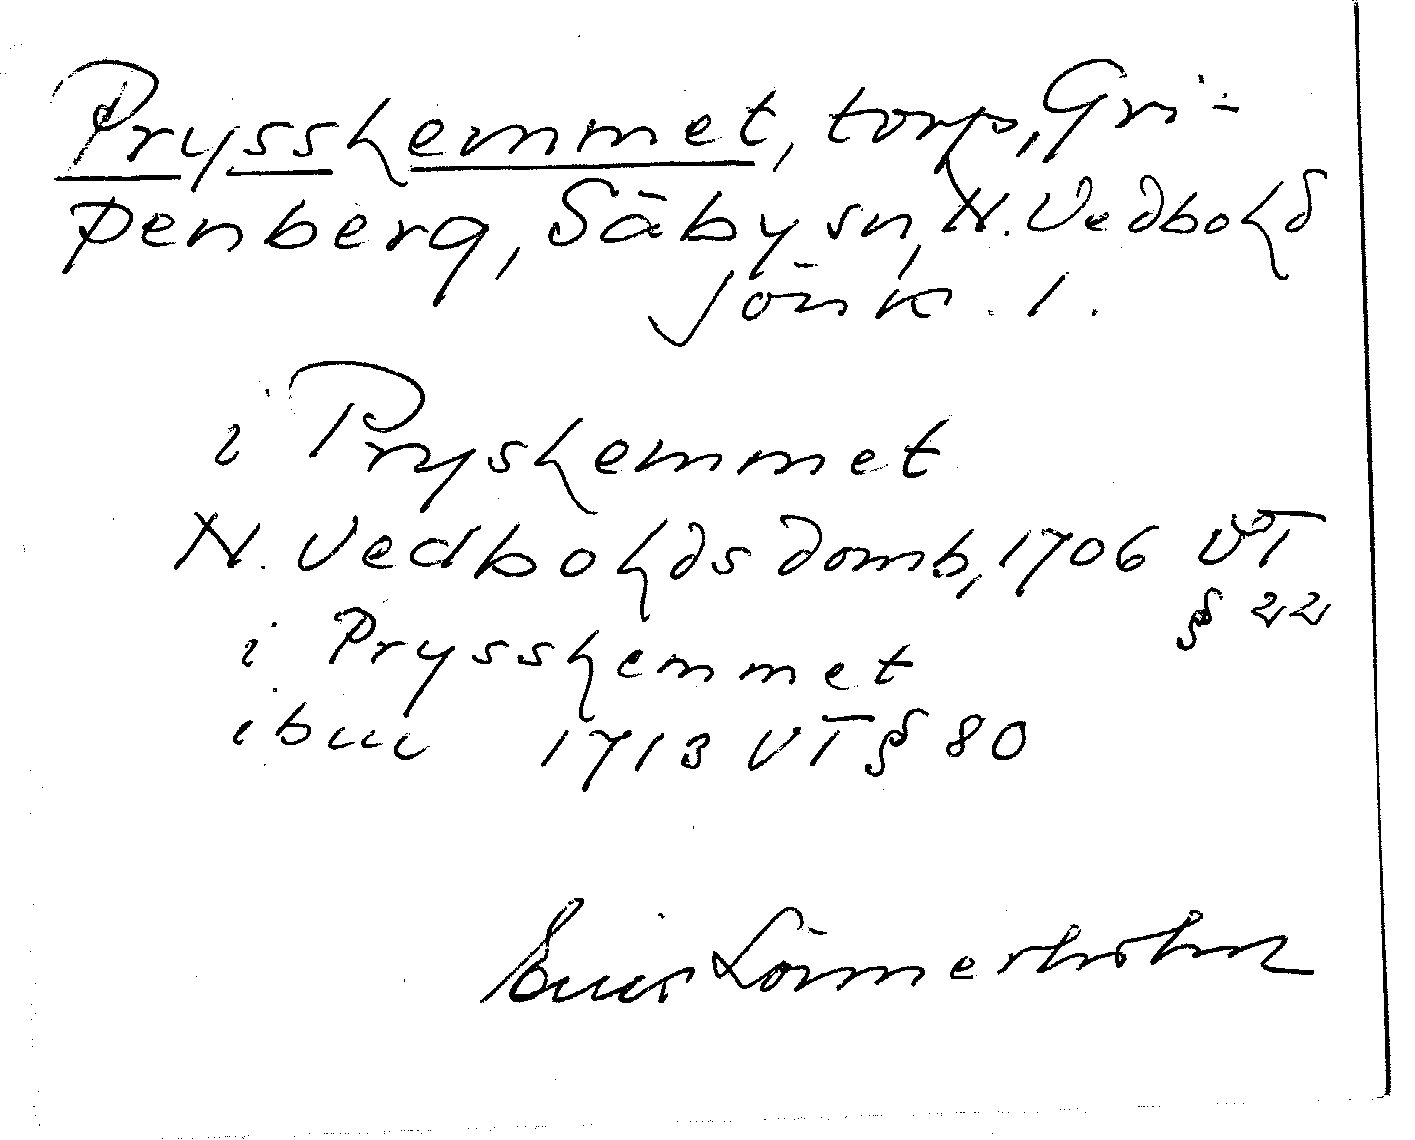 Prysshemmet, torp, Gri-
penberg, Säby sn, N. Vedbohd
Jönk. l.
i Pryshemmet
N. Vedbohds domb, 1706 VT
§ 22
i Prysshemmet
ibm 1713 VT § 80